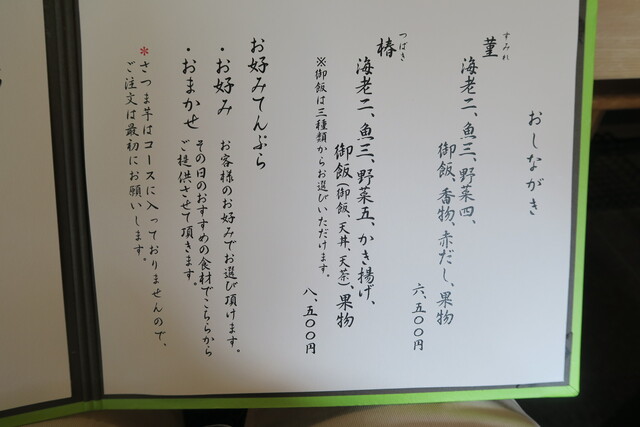 おしながき
すみれ
菫
海老二、魚三、野菜四、
御飯、香物、赤だし、果物
六、五〇〇円
つばき
椿
海老二、魚三、野菜五、かき揚げ、
御飯(御飯、天丼、天茶)、果物
※御飯は三種類からお選びいただけます。
八、五〇〇円
お好みてんぷら
・お好み お客様のお好みでお選び頂けます。
・おまかせ その日のおすすめの食材でこちらから
ご提供させて頂きます。
*さつま芋はコースに入っておりませんので、
ご注文は最初にお願いします。